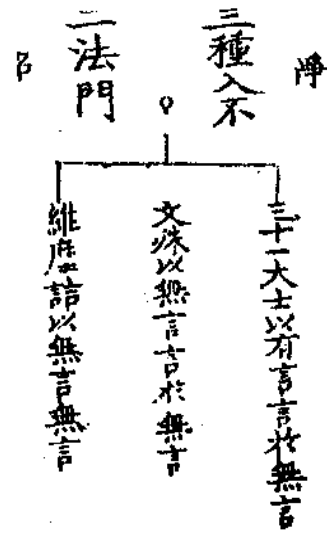 淨
三種入不
二法門
名
三十一大士以有言言於無言
文殊以無言言於無言
維摩詰以無言無言